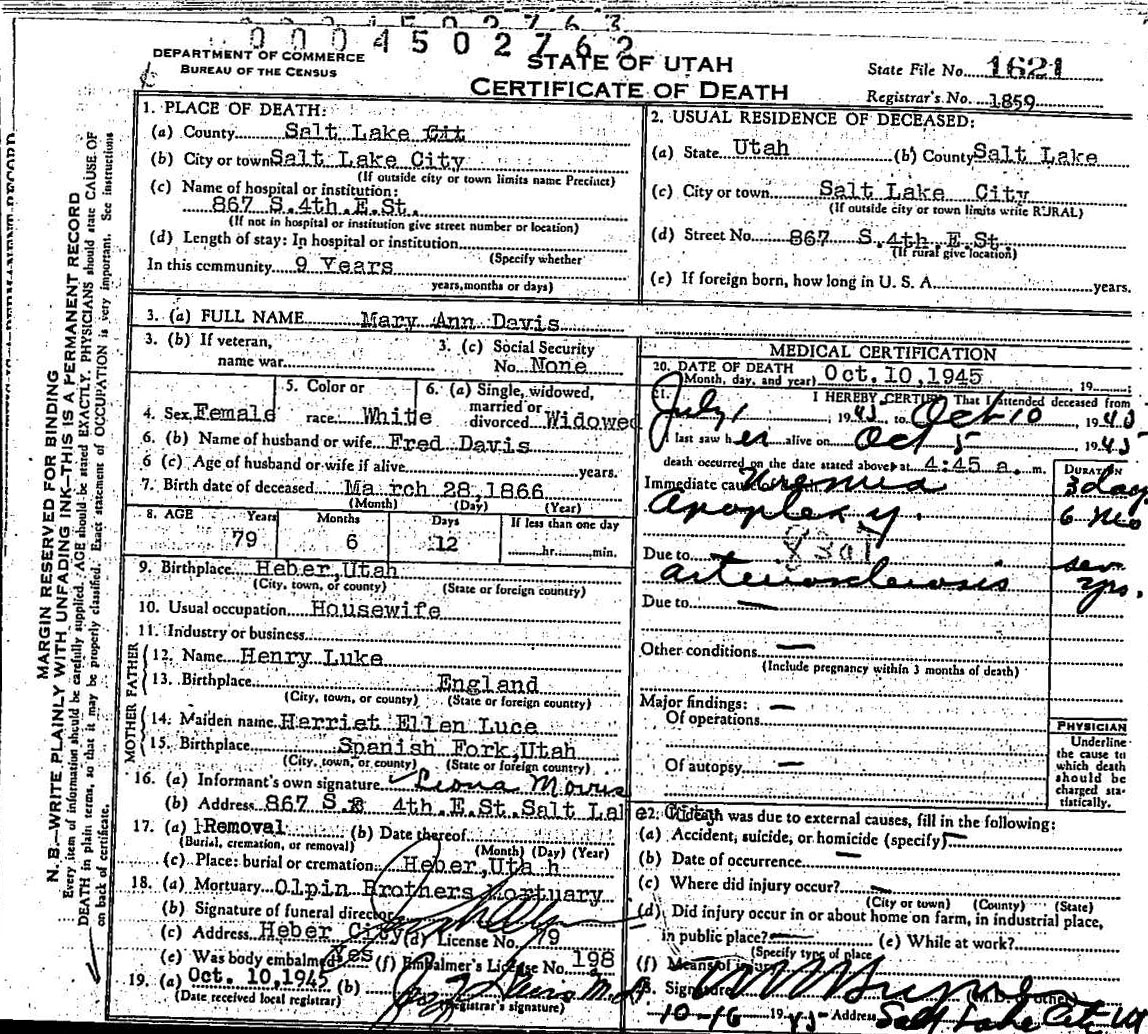 0004502763
0004502762
DEPARTMENT OF COMMERCE
BUREAU OF THE CENSUS
STATE OF UTAH
CERTIFICATE OF DEATH
State File No. 1621
Registrar's No. 1859
MARGIN RESERVED FOR BINDING
N. B.—WRITE PLAINLY WITH UNFADING INK—THIS IS A PERMANENT RECORD
Every item of information should be carefully supplied. AGE should be stated EXACTLY. PHYSICIANS should state CAUSE OF
DEATH in plain terms, so that it may be properly classified. Exact statement of OCCUPATION is very important. See instructions
on back of certificate.
1. PLACE OF DEATH:
(a) County Salt Lake Cit
(b) City or town Salt Lake City
(If outside city or town limits name Precinct)
(c) Name of hospital or institution:
867 S.4th.E.St.
(If not in hospital or institution give street number or location)
(d) Length of stay: In hospital or institution
(Specify whether
In this community 9 Years
years, months or days)
2. USUAL RESIDENCE OF DECEASED:
(a) State Utah (b) County Salt Lake
(c) City or town Salt Lake City
(If outside city or town limits write RURAL)
(d) Street No. 867 S.4th.E.St.
(If rural give location)
(e) If foreign born, how long in U. S. A. years.
3. (a) FULL NAME Mary Ann Davis
3. (b) If veteran,
name war
3. (c) Social Security
No. None
4. Sex Female
5. Color or
race White
6. (a) Single, widowed,
married or
divorced Widowed
6. (b) Name of husband or wife Fred Davis
6 (c) Age of husband or wife if alive years.
7. Birth date of deceased Ma rch 28,1866
(Month) (Day) (Year)
8. AGE Years Months Days If less than one day
79 6 12 hr. min.
9. Birthplace Heber,Utah
(City, town, of county) (State or foreign country)
10. Usual occupation Housewife
11. Industry or business
FATHER
12. Name Henry Luke
13. Birthplace England
(City, town, or county) (State or foreign country)
MOTHER
14. Maiden name Harriet Ellen Luce
15. Birthplace Spanish Fork,Utah
(City, town, or county) (State or foreign country)
16. (a) Informant's own signature Leona Morris
(b) Address 867 S. 4th.E.St.Salt Lake City
17. (a) Removal (b) Date thereof
(Burial, cremation, or removal) (Month) (Day) (Year)
(c) Place: burial or cremation Heber,Uta h
18. (a) Mortuary Olpin Brothers Mortuary
(b) Signature of funeral director
(c) Address Heber City (d) License No. 79
(e) Was body embalmed yes (f) Embalmer's License No. 198
19. (a) Oct. 10,1945 (b)
(Date received local registrar) (Registrar's signature)
MEDICAL CERTIFICATION
20. DATE OF DEATH
(Month, day, and year) Oct. 10,1945 19
21. I HEREBY CERTIFY That I attended deceased from
July 1 1945 to Oct 10 1945
I last saw her alive on Oct 5 1945
death occurred on the date stated above at 4:45 a. m.
DURATION
Immediate cause of death Uremia 3 day
Apoplexy. 6 Mo
83a1
Due to sev
arteriosclerosis yrs.
Due to —
Other conditions —
(Include pregnancy within 3 months of death)
Major findings: —
Of operations
Of autopsy —
PHYSICIAN
Underline
the cause to
which death
should be
charged sta-
tistically.
22. If death was due to external causes, fill in the following:
(a) Accident, suicide, or homicide (specify) —
(b) Date of occurrence —
(c) Where did injury occur? —
(City or town) (County) (State)
(d) Did injury occur in or about home on farm, in industrial place,
in public place? — (e) While at work?
(Specify type of place
(f) Means of injury
23. Signature (M.D. or other)
10-16 1945 Address Salt Lake Cit-Ut